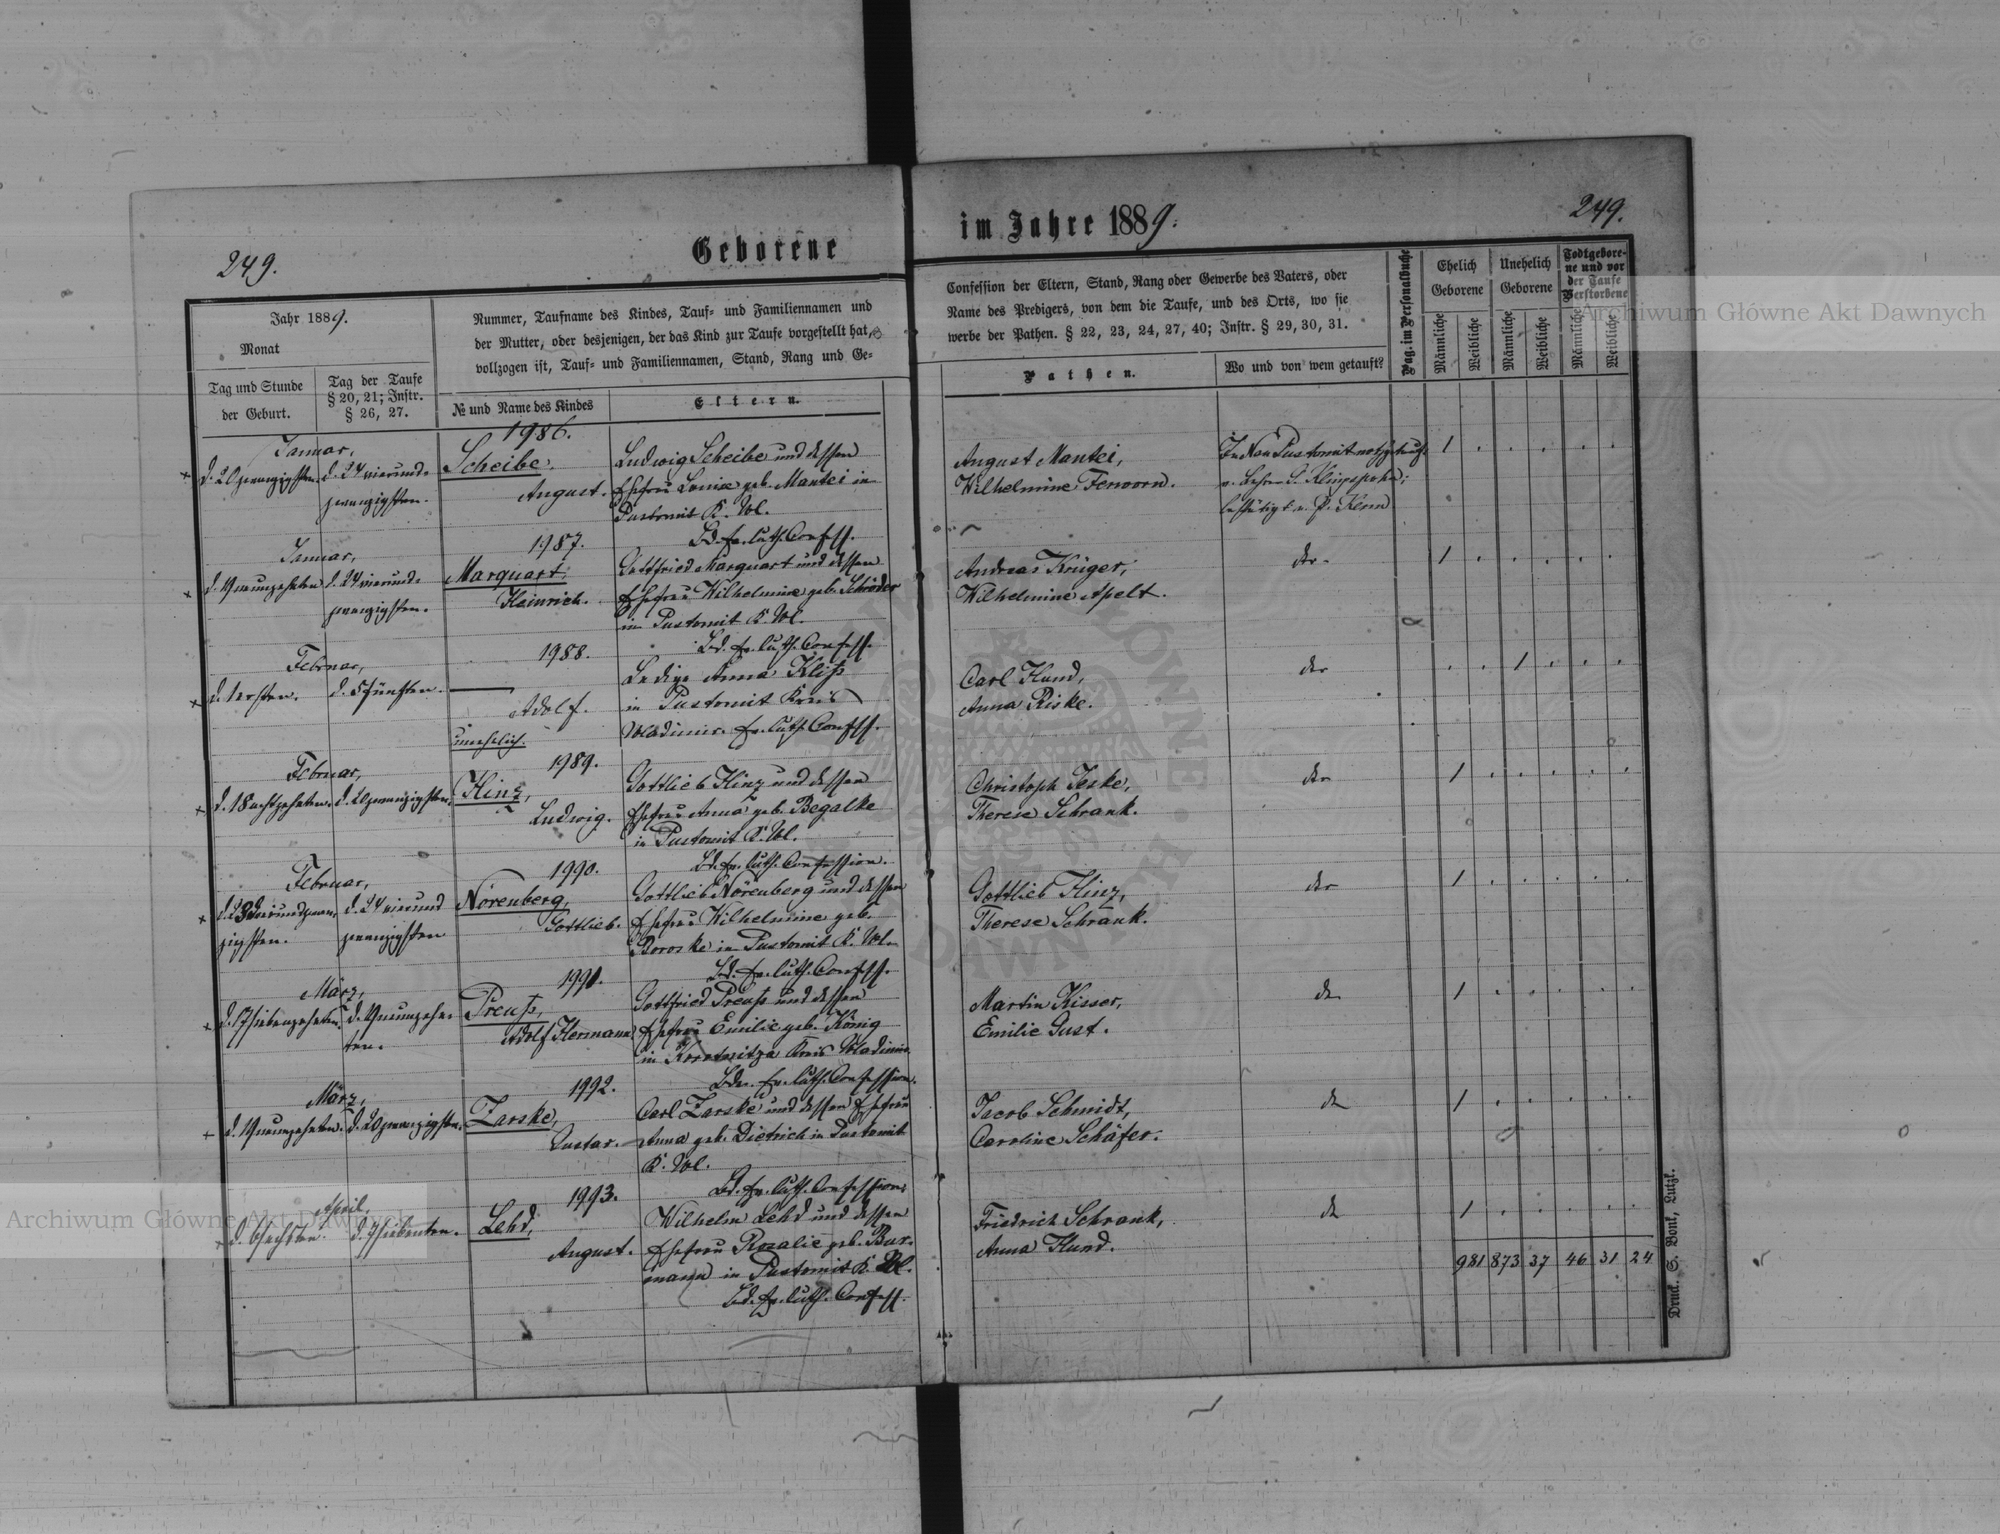 249.
Geborene
im Jahre 1889.
249.
Jahr 1889.
Monat
Tag und Stunde
der Geburt.
Tag der Taufe
§ 20, 21; Instr.
§ 26, 27.
Nummer, Taufname des Kindes, Tauf- und Familiennamen und
der Mutter, oder desjenigen, der das Kind zur Taufe vorgestellt hat,
vollzogen ist, Tauf- und Familiennamen, Stand, Rang und Ge-
№ und Name des Kindes
Eltern.
Confession der Eltern, Stand, Rang oder Gewerbe des Vaters, oder
Name des Predigers, von dem die Taufe, und des Orts, wo sie
werbe der Pathen. § 22, 23, 24, 27, 40; Instr. § 29, 30, 31.
Pathen.
Wo und von wem getauft?
Pag. im Personalbuche
Ehelich
Geborene
Unehelich
Geborene
Todtgebore-
ne und vor
der Taufe
Verstorbene
Männliche
Weibliche
Männliche
Weibliche
Männliche
Weibliche
1986.
Januar,
d. 20 zwanzigsten.
d. 24 vierund-
zwanzigsten.
Scheibe,
August.
Ludwig Scheibe und dessen
Ehefrau Louise geb. Mantei in
Pustomit K. Wl.
Bd. ev. luth. Confess.
August Mantei,
Wilhelmine Fenoorn.
In Neu Pustomit nothgetauft
v. Lehrer G. Klingspohn;
bestätigt v. P. Kern
1
1987.
Januar,
d. 19 neunzehnten
d. 24 vierund-
zwanzigsten.
Marquart,
Heinrich.
Gottfried Marquart und dessen
Ehefrau Wilhelmine geb. Schröder
in Pustomit K. Wl.
Bd. ev. luth. Confess.
Andreas Krüger,
Wilhelmine Apelt.
der
1
1988.
Februar,
d. 1 ersten.
d. 5 fünften.
Adolf.
unehelich.
Ledige Anna Kliß
in Pustomit Kreis
Wladimir. ev. luth. Confess.
Carl Hund,
Anna Riske.
der
1
1989.
Februar,
d. 18 achtzehnten.
d. 20 zwanzigsten.
Hinz,
Ludwig.
Gottlieb Hinz und dessen
Ehefrau Anna geb. Begalke
in Pustomit K. Wl.
Bd. ev. luth. Confession.
Christoph Jeske,
Therese Schrank.
der
1
1990.
Februar,
d. 23 dreiundzwan-
zigsten.
d. 24 vierund
zwanzigsten
Nörenberg,
Gottlieb.
Gottlieb Nörenberg und dessen
Ehefrau Wilhelmine geb.
Boroske in Pustomit K. Wl.
Bd. ev. luth. Confess.
Gottlieb Hinz,
Therese Schrank.
der
1
1991.
März,
d. 17 siebenzehnten.
d. 19 neunzehn-
ten.
Preuß,
Adolf Hermann
Gottfried Preuß und dessen
Ehefrau Emilie geb. König
in Kreis Wladimir.
Bdr. ev. luth. Confession.
Martin Kisser,
Emilie Gust.
der
1
1992.
März,
d. 19 neunzehnten.
d. 20 zwanzigsten.
Zarske,
Gustav.
Carl Zarske und dessen Ehefrau
Anna geb. Dietrich in Pustomit
K. Wl.
Bd. ev. luth. Confession.
Jacob Schmidt,
Caroline Schäfer.
der
1
1993.
April,
d. 6 sechsten.
d. 7 siebenten.
Lehd,
August.
Wilhelm Lehd und dessen
Ehefrau Rozalie geb. Bur-
mann in Pustomit K. Wl.
Bd. ev. luth. Confess.
Friedrich Schrank,
Anna Hund.
der
1
981 873 37 46 31 24
Druck. S. Bonk, Lutzk.
Archiwum Główne Akt Dawnych
Archiwum Główne Akt Dawnych